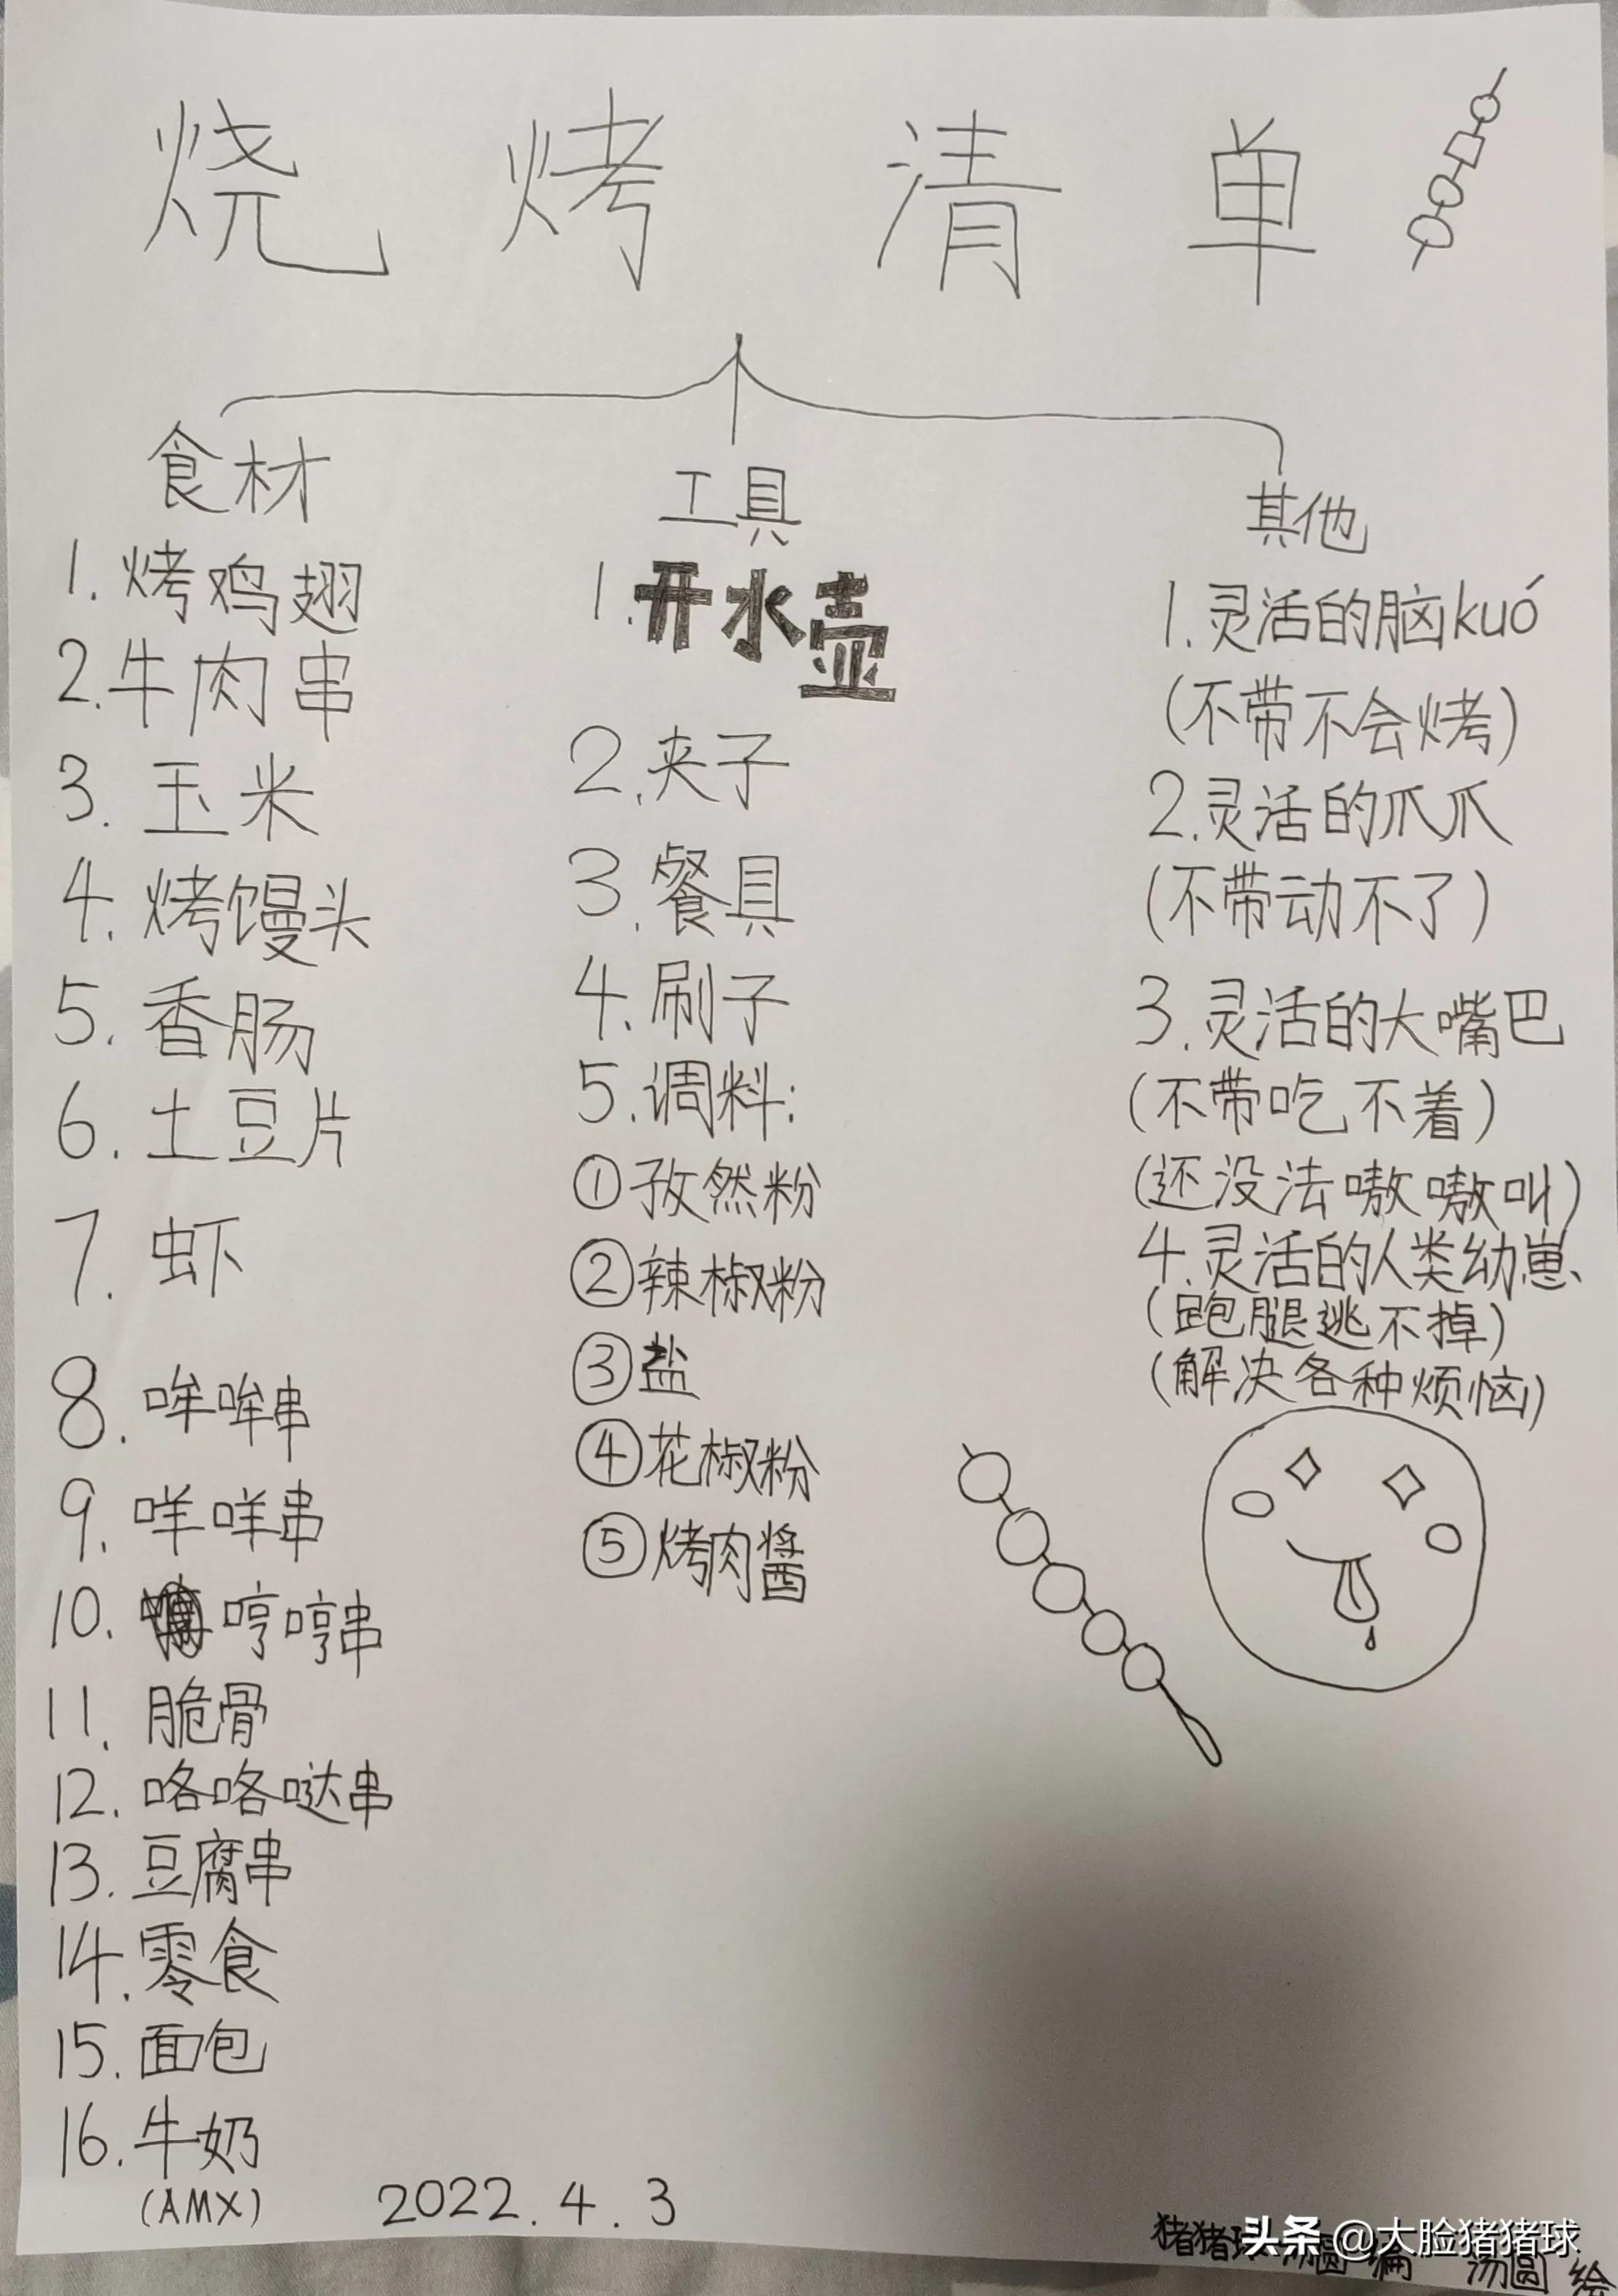 烧烤清单
食材
1.烤鸡翅
2.牛肉串
3.玉米
4.烤馒头
5.香肠
6.土豆片
7.虾
8.哞哞串
9.咩咩串
10.哼哼串
11.脆骨
12.咯咯哒串
13.豆腐串
14.零食
15.面包
16.牛奶
(AMX)
工具
1.开水壶
2.夹子
3.餐具
4.刷子
5.调料:
①孜然粉
②辣椒粉
③盐
④花椒粉
⑤烤肉酱
其他
1.灵活的脑kuó
(不带不会烤)
2.灵活的爪爪
(不带动不了)
3.灵活的大嘴巴
(不带吃不着)
(还没法嗷嗷叫)
4.灵活的人类幼崽
(跑腿逃不掉)
(解决各种烦恼)
2022.4.3
猪猪球 圆 编 汤圆 绘
头条 @大脸猪猪球